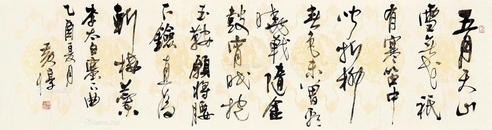 五月天山
雪無花祇
有寒笛中
聞折柳
春色未曾看
曉戰隨金
鼓宵眠抱
玉鞍願將腰
下劍直為
斬樓蘭
李太白塞下曲
乙酉夏月
黃惇